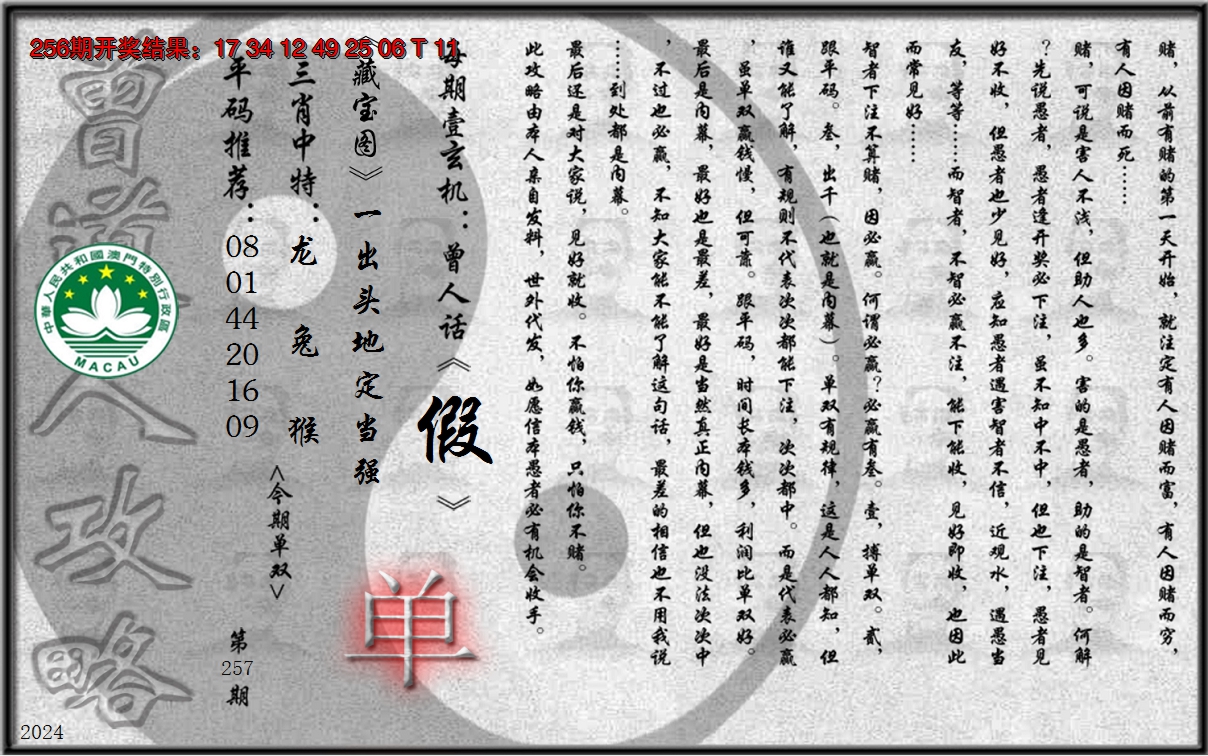 256期开奖结果：17 34 12 49 25 06 T 11
赌，从前有赌的第一天开始，就注定有人因赌而富，有人因赌而穷，
有人因赌而死……
赌，可说是害人不浅，但助人也多。害的是愚者，助的是智者。何解
？先说愚者，愚者逢开奖必下注，虽不知中不中，但也下注，愚者见
好不收，但愚者也少见好，应知愚者遇害智者不信，近观水，遇愚当
友，等等……而智者，不智必赢不注，能下能收，见好即收，也因此
而常见好……
智者下注不算赌，因必赢。何谓必赢？必赢有叁。壹，搏单双。贰，
跟平码。叁，出千（也就是内幕）。单双有规律，这是人人都知，但
谁又能了解，有规则不代表次次都能下注，次次都中。而是代表必赢
，虽单双赢钱慢，但可靠。跟平码，时间长本钱多，利润比单双好。
最后是内幕，最好也是最差，最好是当然真正内幕，但也没法次次中
，不过也必赢，不知大家能不能了解这句话，最差的相信也不用我说
……到处都是内幕。
最后还是对大家说，见好就收。不怕你赢钱，只怕你不赌。
此攻略由本人亲自发料，世外代发，如愿信本愚者必有机会收手。
每期壹玄机：曾人话《假》
《藏宝图》一出头地定当强
单
三肖中特：龙 兔 猴
<今期单双>
平码推荐：08 01 44 20 16 09
第257期
曾道人攻略
中華人民共和國澳門特別行政區
MACAU
2024